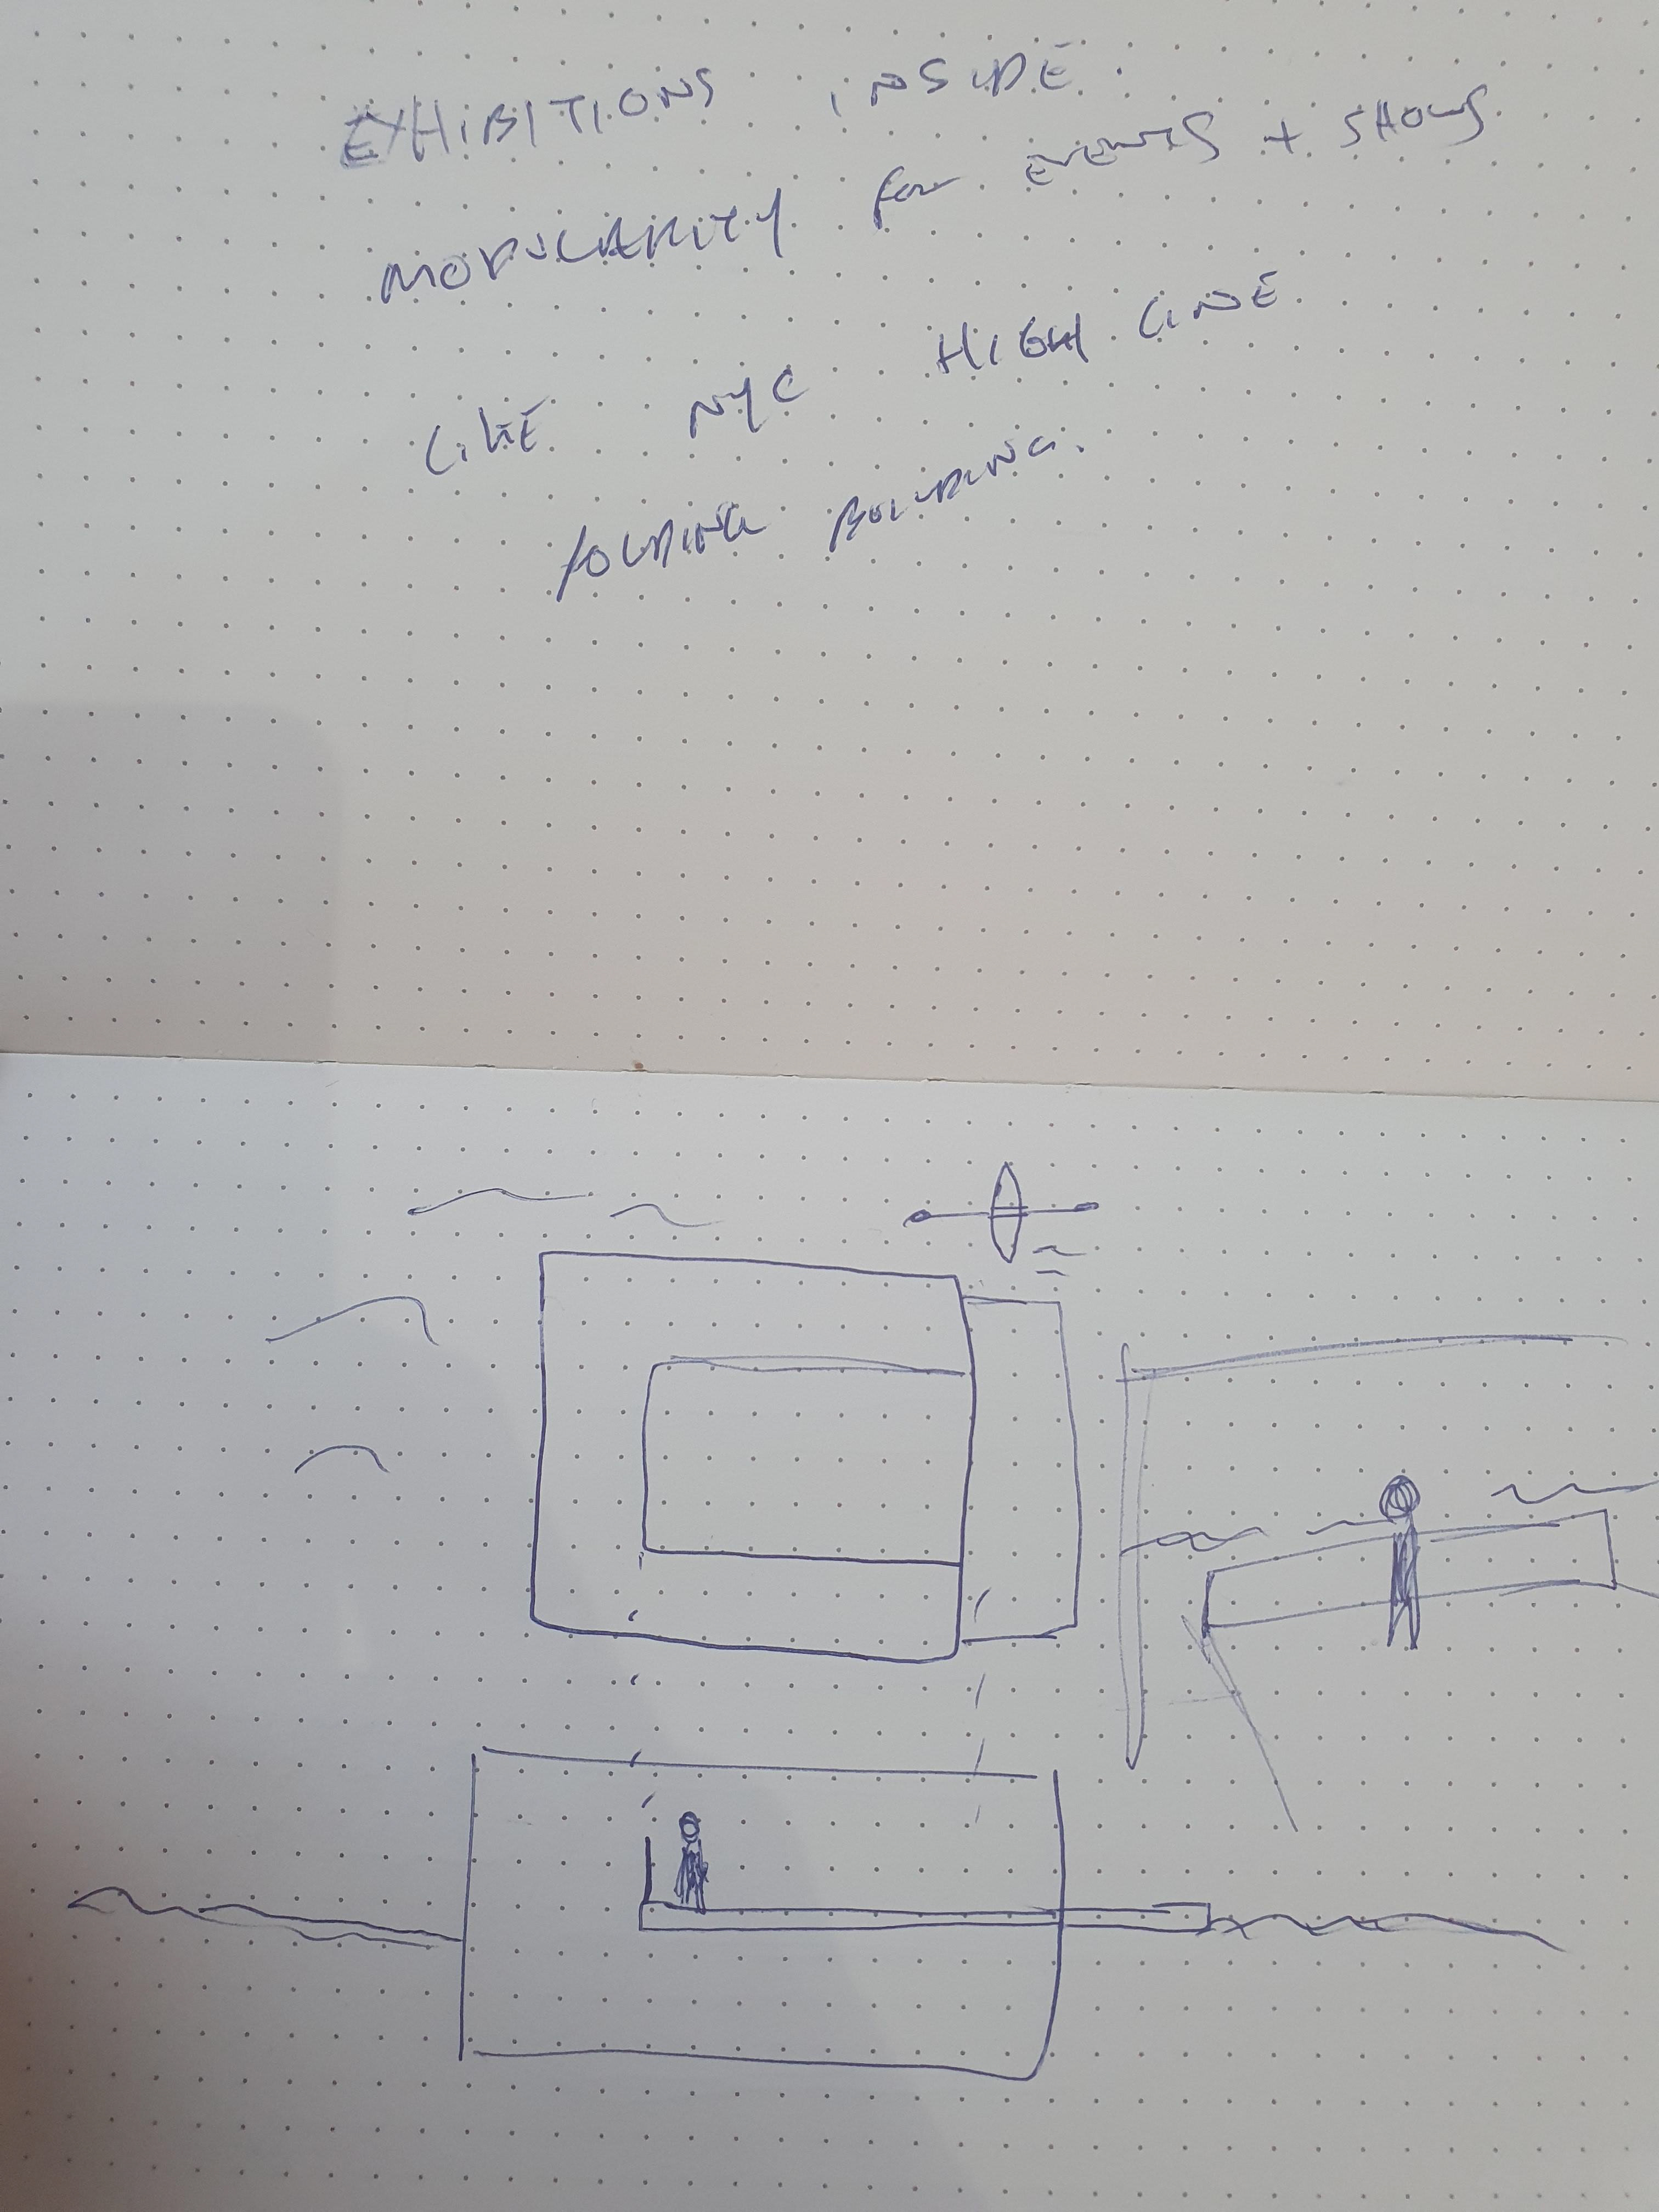 EXHIBITIONS INSIDE.
MODULARITY for EVENTS + SHOWS
LIKE NYC HIGH LINE
FOLDING BUILDING.